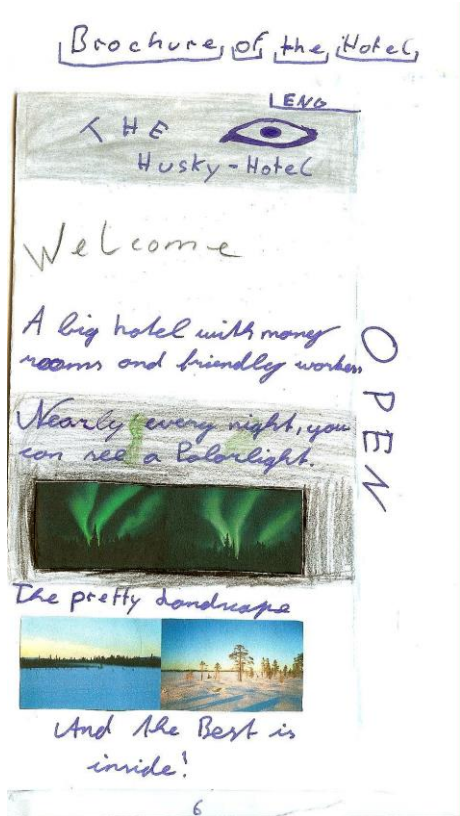 Brochure of the Hotel
ENG
THE
Husky-Hotel
Welcome
A big hotel with many
rooms and friendly workers
OPEN
Nearly every night, you
can see a Polarlight.
The pretty Landscape
And the Best is
inside!
6